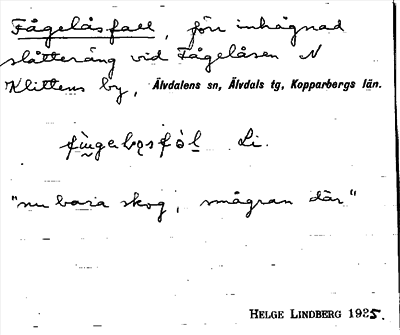 Fågelåsfall, förr inhägnad
slåtteräng vid Fågelåsen N
Klittens by, Älvdalens sn, Älvdals tg, Kopparbergs län.
Li.
"nu bara skog, smågran där"
HELGE LINDBERG 1935.